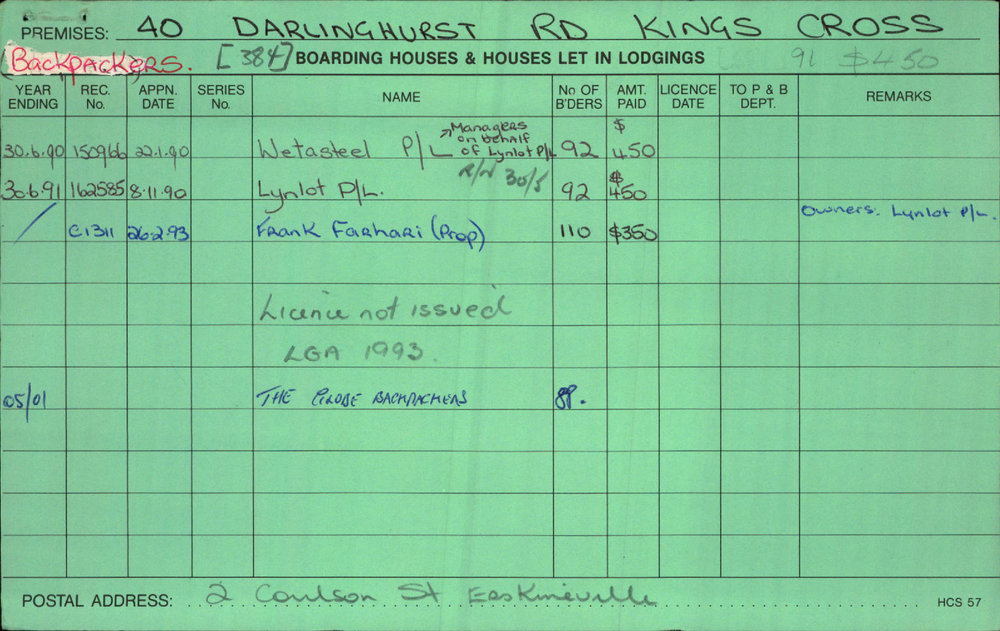 PREMISES: 40 DARLINGHURST RD KINGS CROSS
Backpackers. [384] BOARDING HOUSES & HOUSES LET IN LODGINGS 91 $450
YEAR ENDING REC. No. APPN. DATE SERIES No. NAME No OF B'DERS AMT. PAID LICENCE DATE TO P & B DEPT. REMARKS
30.6.90 150966 22.1.90 Wetasteel P/L Managers on behalf of Lynlot P/L 92 $450
R/N 30/5
30.6.91 162585 8.11.90 Lynlot P/L. 92 $450
Owners: Lynlot P/L.
/ C1311 26.2.93 Frank Farhari (Prop) 110 $350
Licence not issued
LGA 1993.
05/01 THE GLOBE BACKPACKERS 89.
POSTAL ADDRESS: 2 Coulson St Erskineville
HCS 57